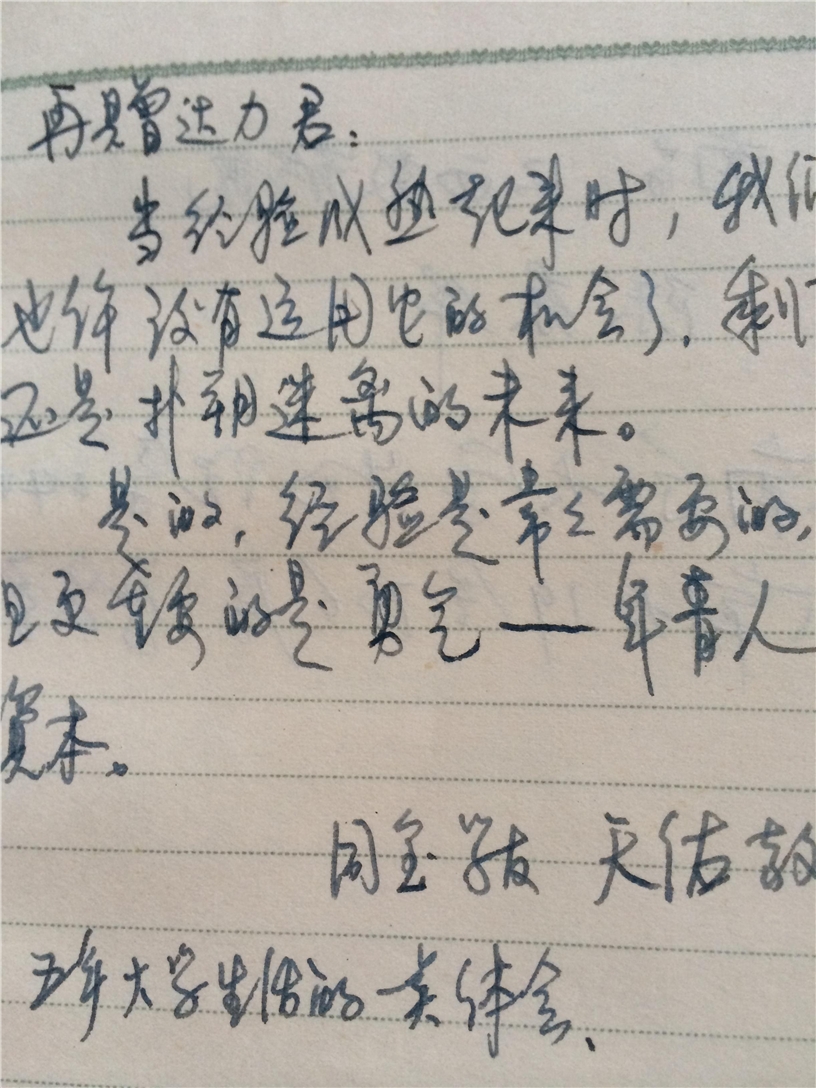 再赠达力君：
当经验成熟起来时，我们
也许没有运用它的机会了．剩下
还是扑朔迷离的未来。
是的，经验是常々需要的，
且更重要的是勇气——年青人
资本。
同室学友 天佑敬
五年大学生活的一点体会、